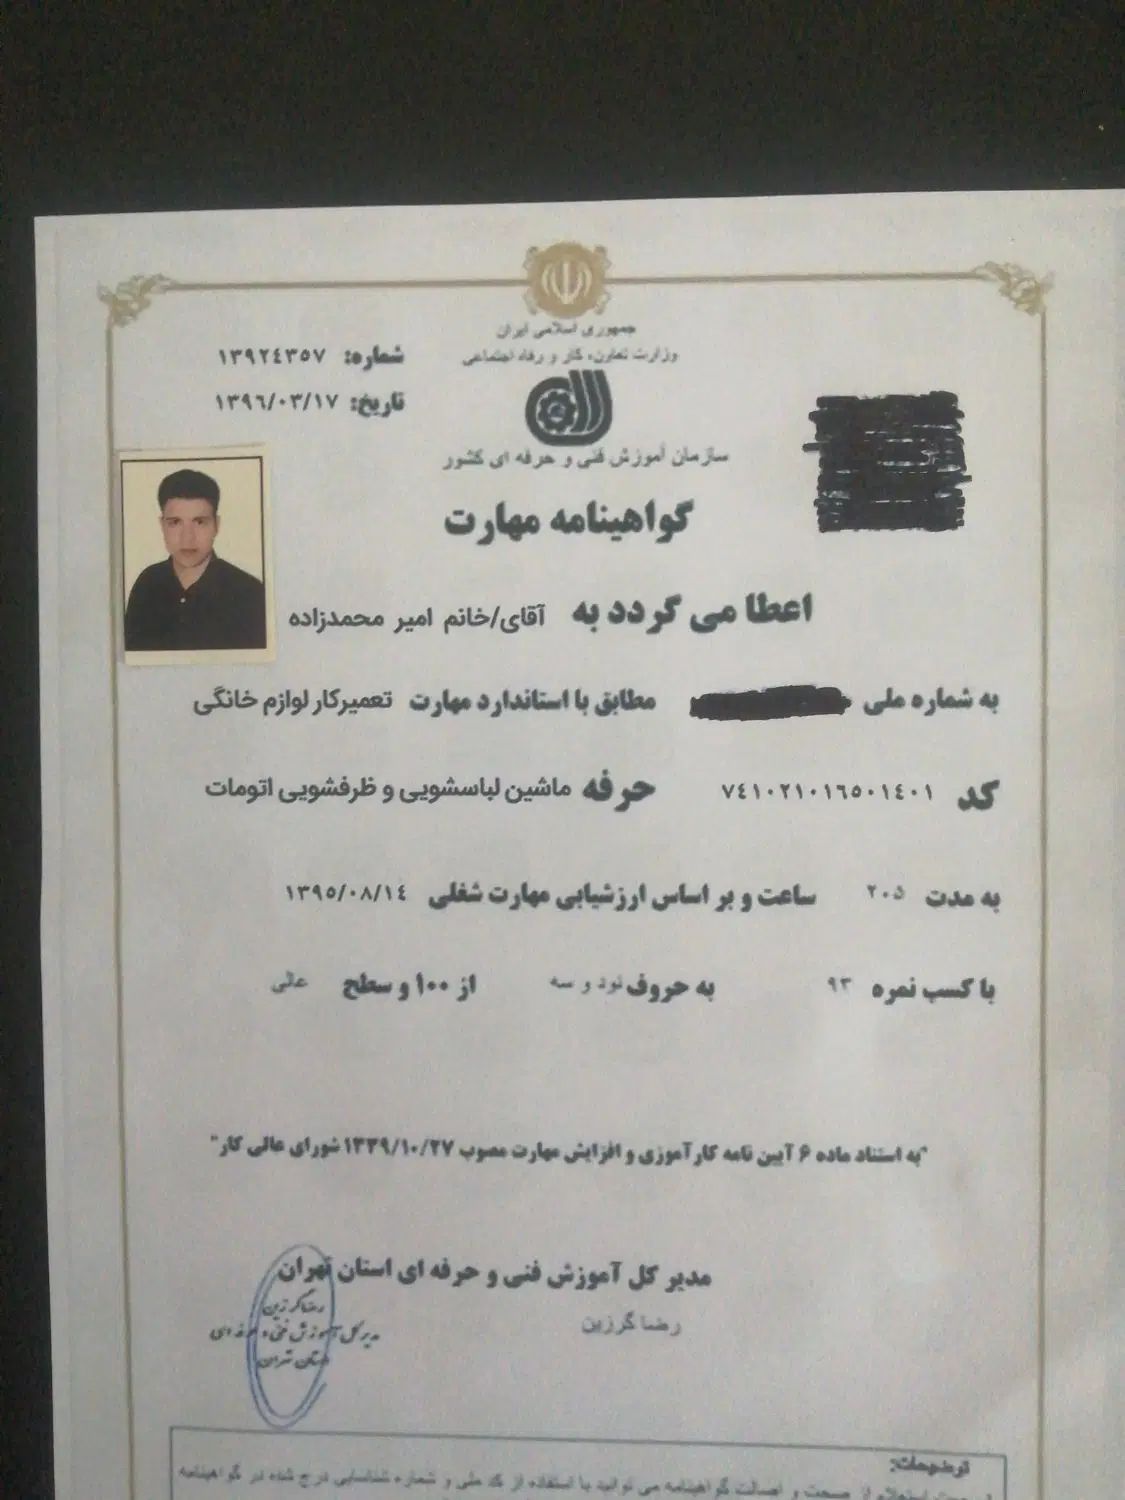 جمهوری اسلامی ایران
وزارت تعاون، کار و رفاه اجتماعی
شماره: ۱۳۹۲۴۳۵۷
تاریخ: ۱۳۹۶/۰۳/۱۷
سازمان آموزش فنی و حرفه ای کشور
گواهینامه مهارت
اعطا می گردد به آقای/خانم امیر محمدزاده
به شماره ملی مطابق با استاندارد مهارت تعمیرکار لوازم خانگی
کد ۷۴۱۰۲۱۰۱۶۵۰۱٤۰۱ حرفه ماشین لباسشویی و ظرفشویی اتومات
به مدت ۲۰۵ ساعت و بر اساس ارزشیابی مهارت شغلی ۱۳۹۵/۰۸/۱٤
با کسب نمره ۹۳ به حروف نود و سه از ۱۰۰ و سطح عالی
"به استناد ماده ۶ آیین نامه کارآموزی و افزایش مهارت مصوب ۱۳۴۹/۱۰/۲۷ شورای عالی کار"
مدیر کل آموزش فنی و حرفه ای استان تهران
رضا گرزین
رضا گرزین
مدیر کل آموزش فنی و حرفه ای
استان تهران
توضیحات:
صحت و اصالت گواهینامه می توانید با استفاده از کد ملی و شماره شناسایی درج شده در گواهینامه